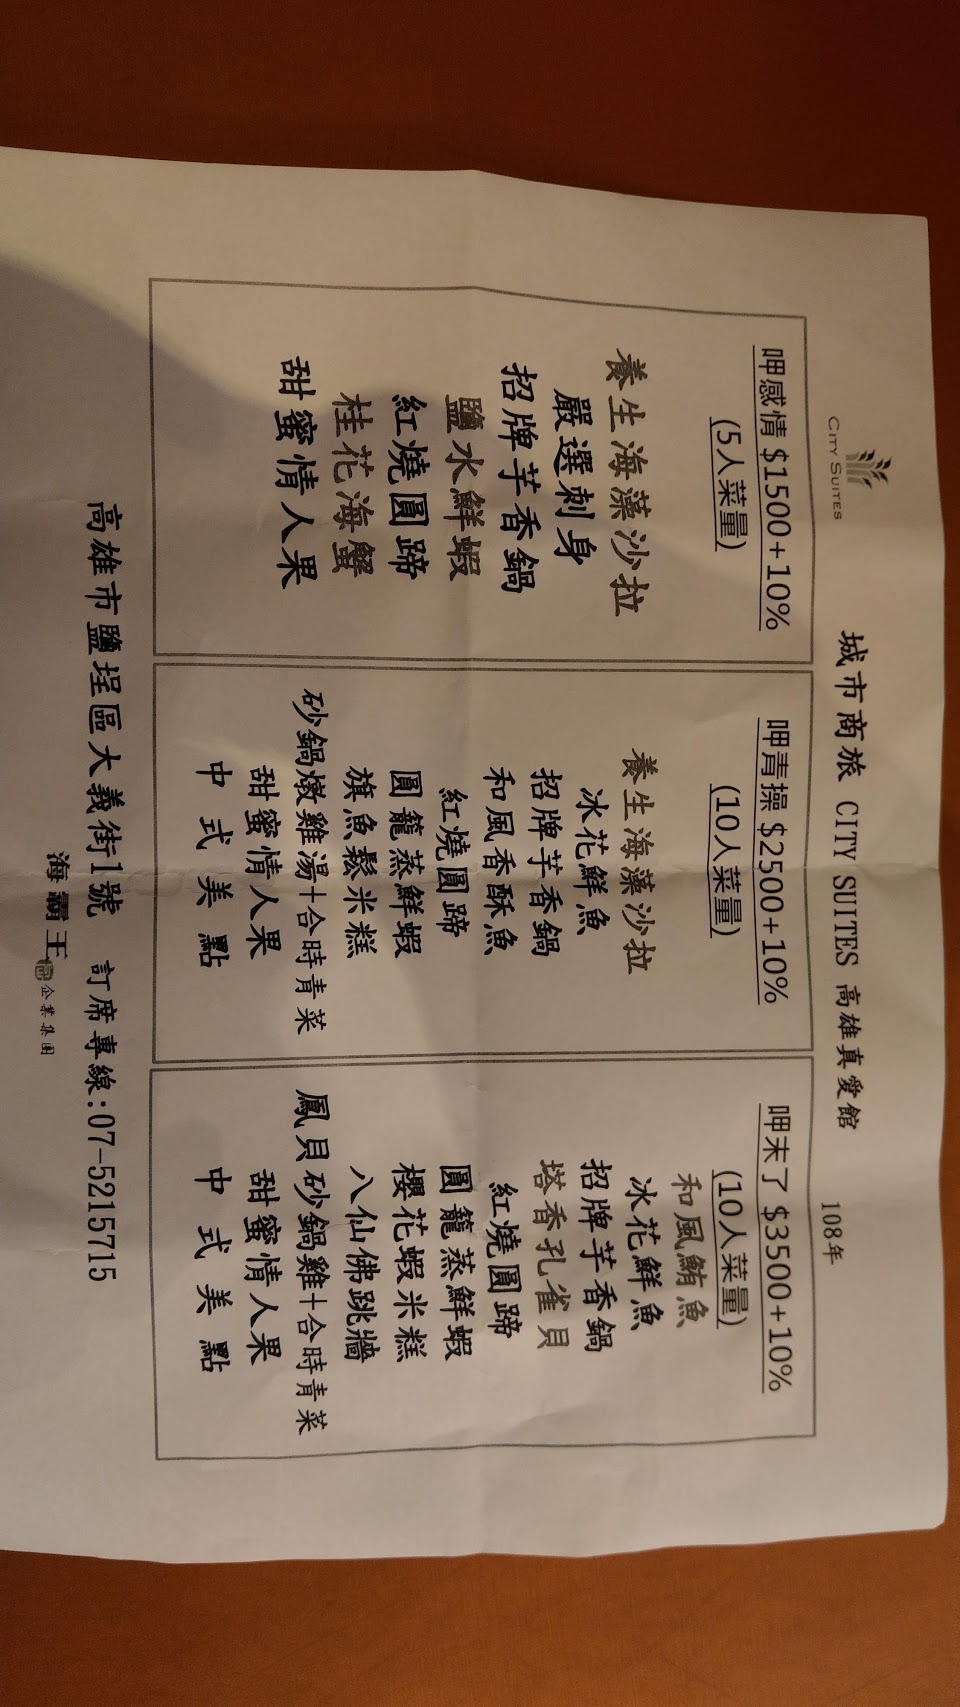 CITY SUITES
城市商旅 CITY SUITES 高雄真愛館 108年
呷感情 $1500+10%
(5人菜量)
養生海藻沙拉
嚴選刺身
招牌芋香鍋
鹽水鮮蝦
紅燒圓蹄
桂花海蟹
甜蜜情人果
呷青操 $2500+10%
(10人菜量)
養生海藻沙拉
冰花鮮魚
招牌芋香鍋
和風香酥魚
紅燒圓蹄
圓籠蒸鮮蝦
旗魚鬆米糕
砂鍋燉雞湯+合時青菜
甜蜜情人果
中式美點
呷未了 $3500+10%
(10人菜量)
和風鮪魚
冰花鮮魚
招牌芋香鍋
塔香孔雀貝
紅燒圓蹄
圓籠蒸鮮蝦
櫻花蝦米糕
八仙佛跳牆
鳳貝砂鍋雞+合時青菜
甜蜜情人果
中式美點
高雄市鹽埕區大義街1號 訂席專線:07-5215715
海霸王 企業集團